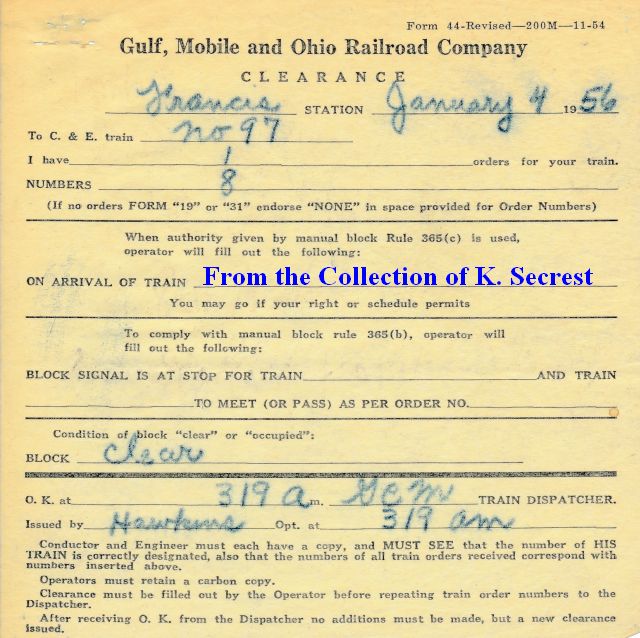 Form 44-Revised—200M—11-54
Gulf, Mobile and Ohio Railroad Company
CLEARANCE
Francis STATION January 4 1956
To C. & E. train no 97
I have 1 orders for your train.
NUMBERS 8
(If no orders FORM "19" or "31" endorse "NONE" in space provided for Order Numbers)
When authority given by manual block Rule 365(c) is used,
operator will fill out the following:
ON ARRIVAL OF TRAIN From the Collection of K. Secrest
You may go if your right or schedule permits
To comply with manual block rule 365(b), operator will
fill out the following:
BLOCK SIGNAL IS AT STOP FOR TRAIN AND TRAIN
TO MEET (OR PASS) AS PER ORDER NO.
Condition of block "clear" or "occupied":
BLOCK clear
O. K. at 319 a m. GCM TRAIN DISPATCHER.
Issued by Hawkins Opt. at 319 am
Conductor and Engineer must each have a copy, and MUST SEE that the number of HIS
TRAIN is correctly designated, also that the numbers of all train orders received correspond with
numbers inserted above.
Operators must retain a carbon copy.
Clearance must be filled out by the Operator before repeating train order numbers to the
Dispatcher.
After receiving O. K. from the Dispatcher no additions must be made, but a new clearance
issued.